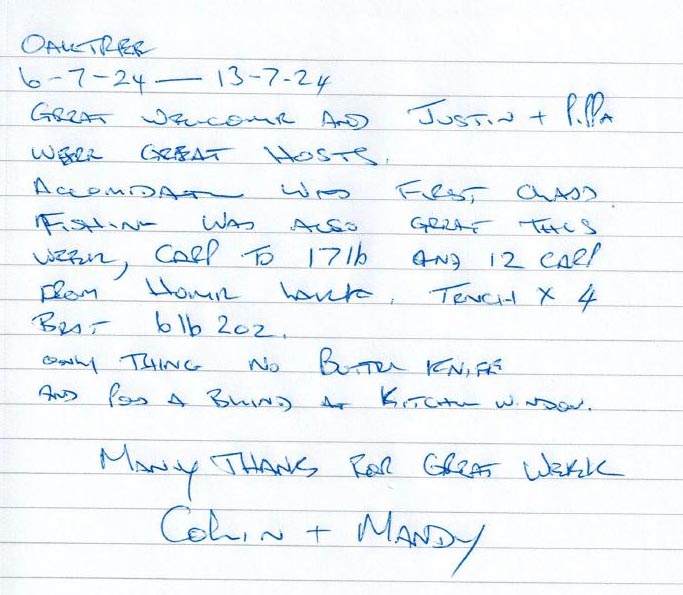 OAKTREE
6-7-24 — 13-7-24
GREAT WELCOME AND JUSTIN + PIPPA
WERE GREAT HOSTS.
ACCOMIDATION WAS FIRST CLASS
FISHING WAS ALSO GREAT THIS
WEEK, CARP TO 17lb AND 12 CARP
FROM HOME LAKE. TENCH X 4
BEST 6lb 2oz.
ONLY THING NO BUTTER KNIFE
AND A BLIND AT KITCHEN WINDOW.
MANY THANKS FOR GREAT WEEK
COLIN + MANDY